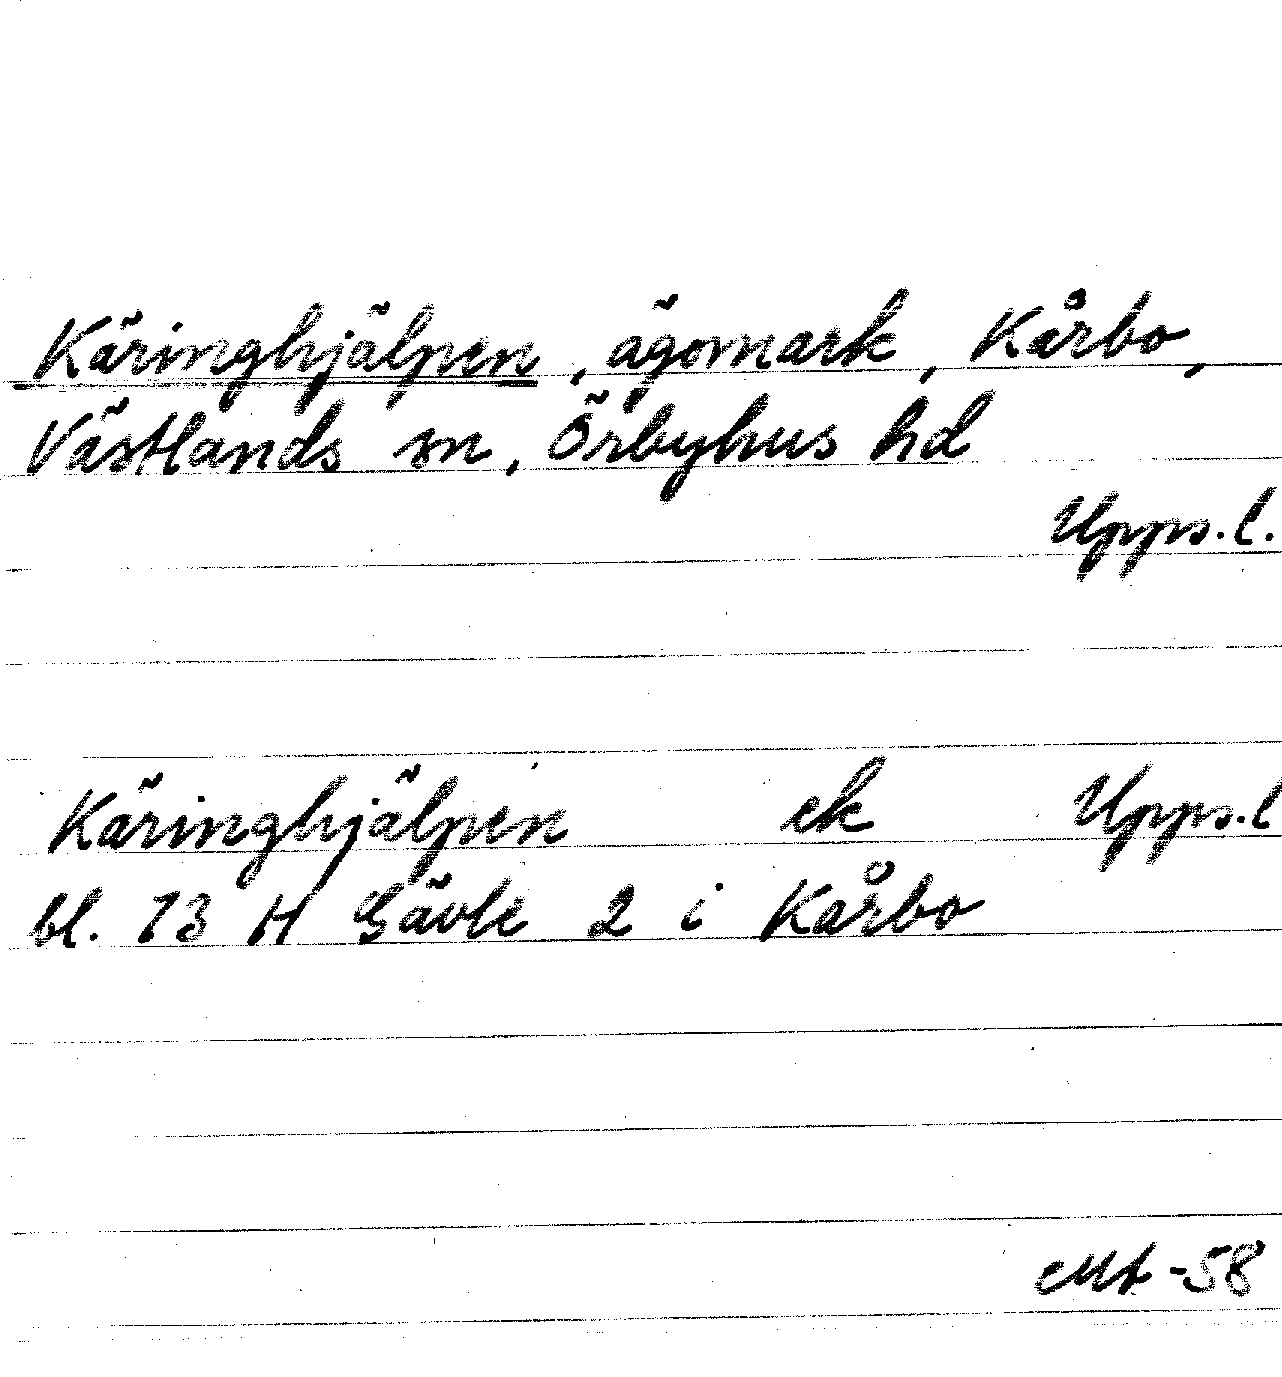 Käringhjälpen, ägomark, Kårbo,
Västlands sn, Örbyhus hd
Upps. l.
Käringhjälpen ek Upps. l
bl. 13 H Gävle 2 i Kårbo
-58